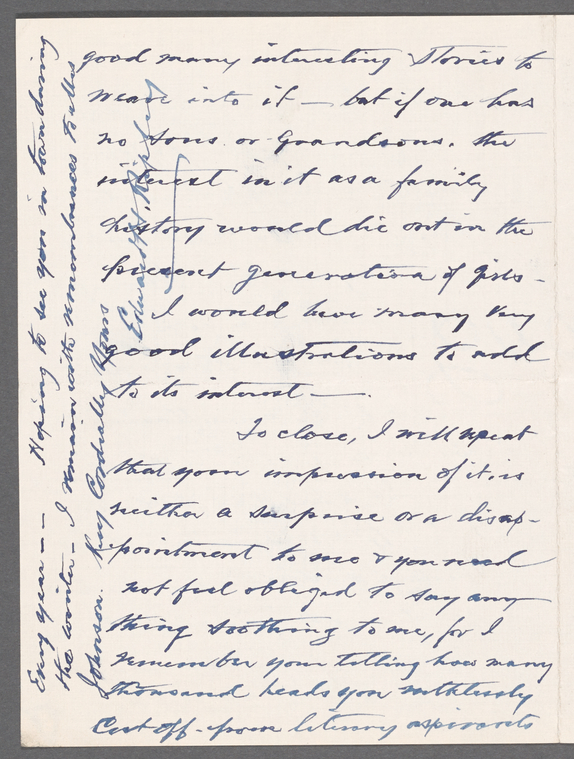 good many interesting stories to
weave into it — but if one has
no sons or Grandsons, the
interest in it as a family
history would die out in the
present generation of girls -
I would have many very
good illustrations to add
to its interest — .
To close, I will repeat
that your impression of it is
neither a surprise or a disap-
pointment to me & you need
not feel obliged to say any
thing soothing to me, for I
remember your telling how many
thousand heads you ruthlessly
cut off - from literary aspirants
Every year — — Hoping to see you in town during
the winter - I remain with remembrances to Mrs
Johnson. Very Cordially Yours
Edward H. Ripley